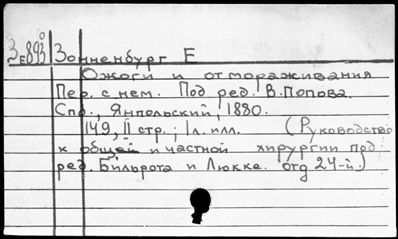 Зонненбург Е
Ожоги и отмораживания
Пер. с нем. Под ред. В. Попова.
Спб., Ямпольский, 1880.
149, II стр.; 1 л. илл. (Руководство
к общей и частной хирургии под
ред. Бильрота и Люкке. отд 24-й.)